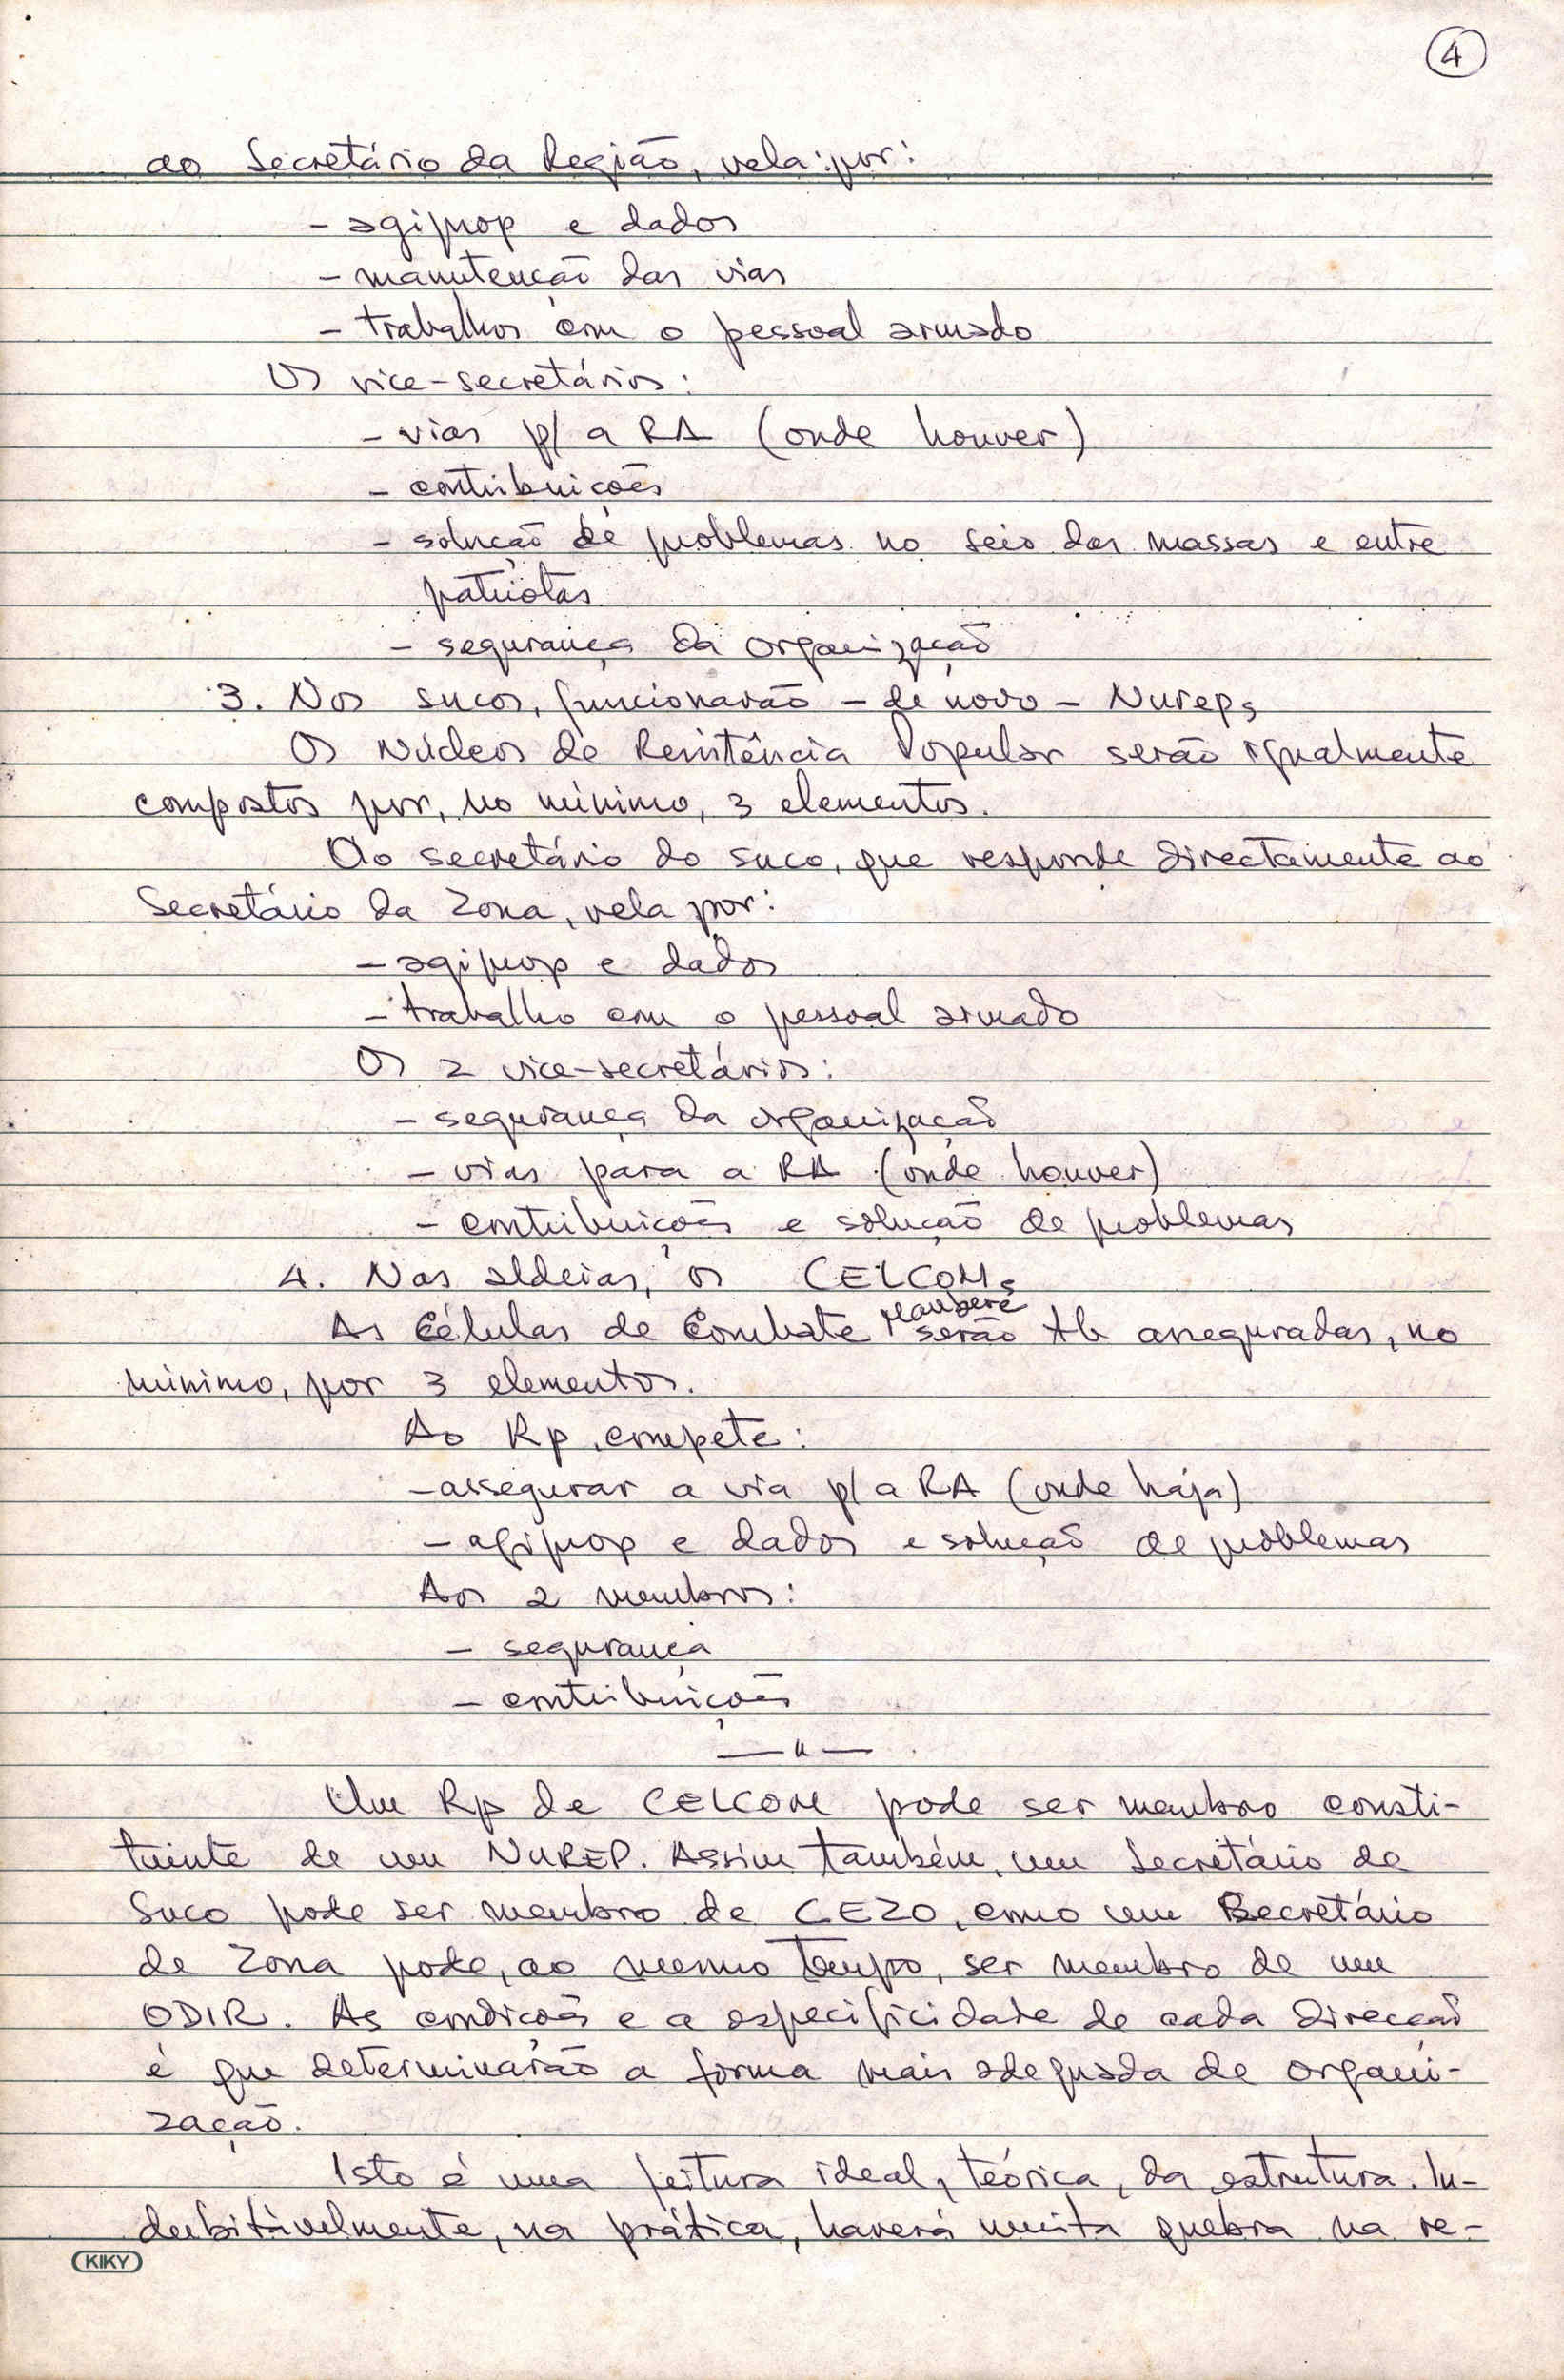 4
ao Secretário da Região, vela por:
- agiprop e dados
- manutenção das vias
- trabalhos com o pessoal armado
Os vice-secretários:
- vias p/ a RA (onde houver)
- contribuições
- solução de problemas no seio das massas e entre
patriotas
- segurança da organização
3. Nos sucos, funcionarão - de novo - Nureps
Os Núcleos de Resistência Popular serão igualmente
compostos por, no mínimo, 3 elementos.
Ao secretário do suco, que responde directamente ao
Secretário da Zona, vela por:
- agiprop e dados
- trabalho com o pessoal armado
Os 2 vice-secretários:
- segurança da organização
- vias para a RA (onde houver)
- contribuições e solução de problemas
4. Nas aldeias, os CELCOMs
maubere
As Células de Combate serão tb asseguradas, no
mínimo, por 3 elementos.
Ao Rp compete:
- assegurar a via p/ a RA (onde haja)
- agiprop e dados e solução de problemas
Aos 2 membros:
- segurança
- contribuições
—"—
Um Rp de CELCOM pode ser membro consti-
tuinte de um NUREP. Assim também, um Secretário de
Suco pode ser membro de CEZO, como um Secretário
de Zona pode, ao mesmo tempo, ser membro de um
ODIR. As condições e a especificidade de cada direcção
é que determinarão a forma mais adequada de organi-
zação.
Isto é uma feitura ideal, teórica, da estrutura. In-
dubitàvelmente, na prática, haverá muita quebra na re-
KIKY